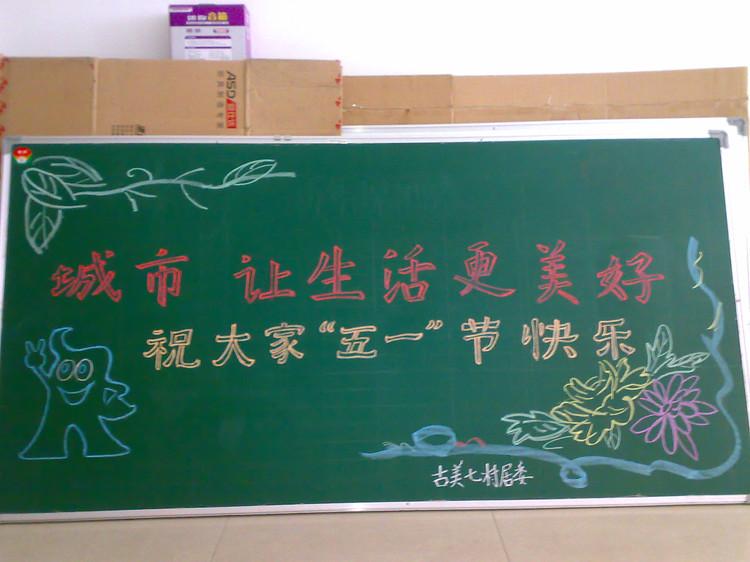 音箱
ASD
城市 让生活更美好
祝大家“五一”节快乐
古美七村居委